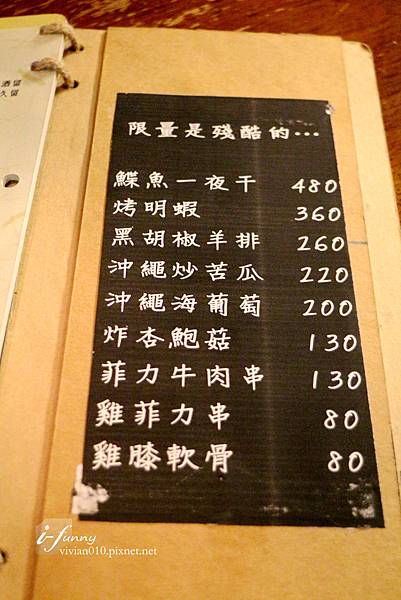 酒留
久留
限量是殘酷的…
鰈魚一夜干 480
烤明蝦 360
黑胡椒羊排 260
沖繩炒苦瓜 220
沖繩海葡萄 200
炸杏鮑菇 130
菲力牛肉串 130
雞菲力串 80
雞膝軟骨 80
i-funny
vivian010.pixnet.net